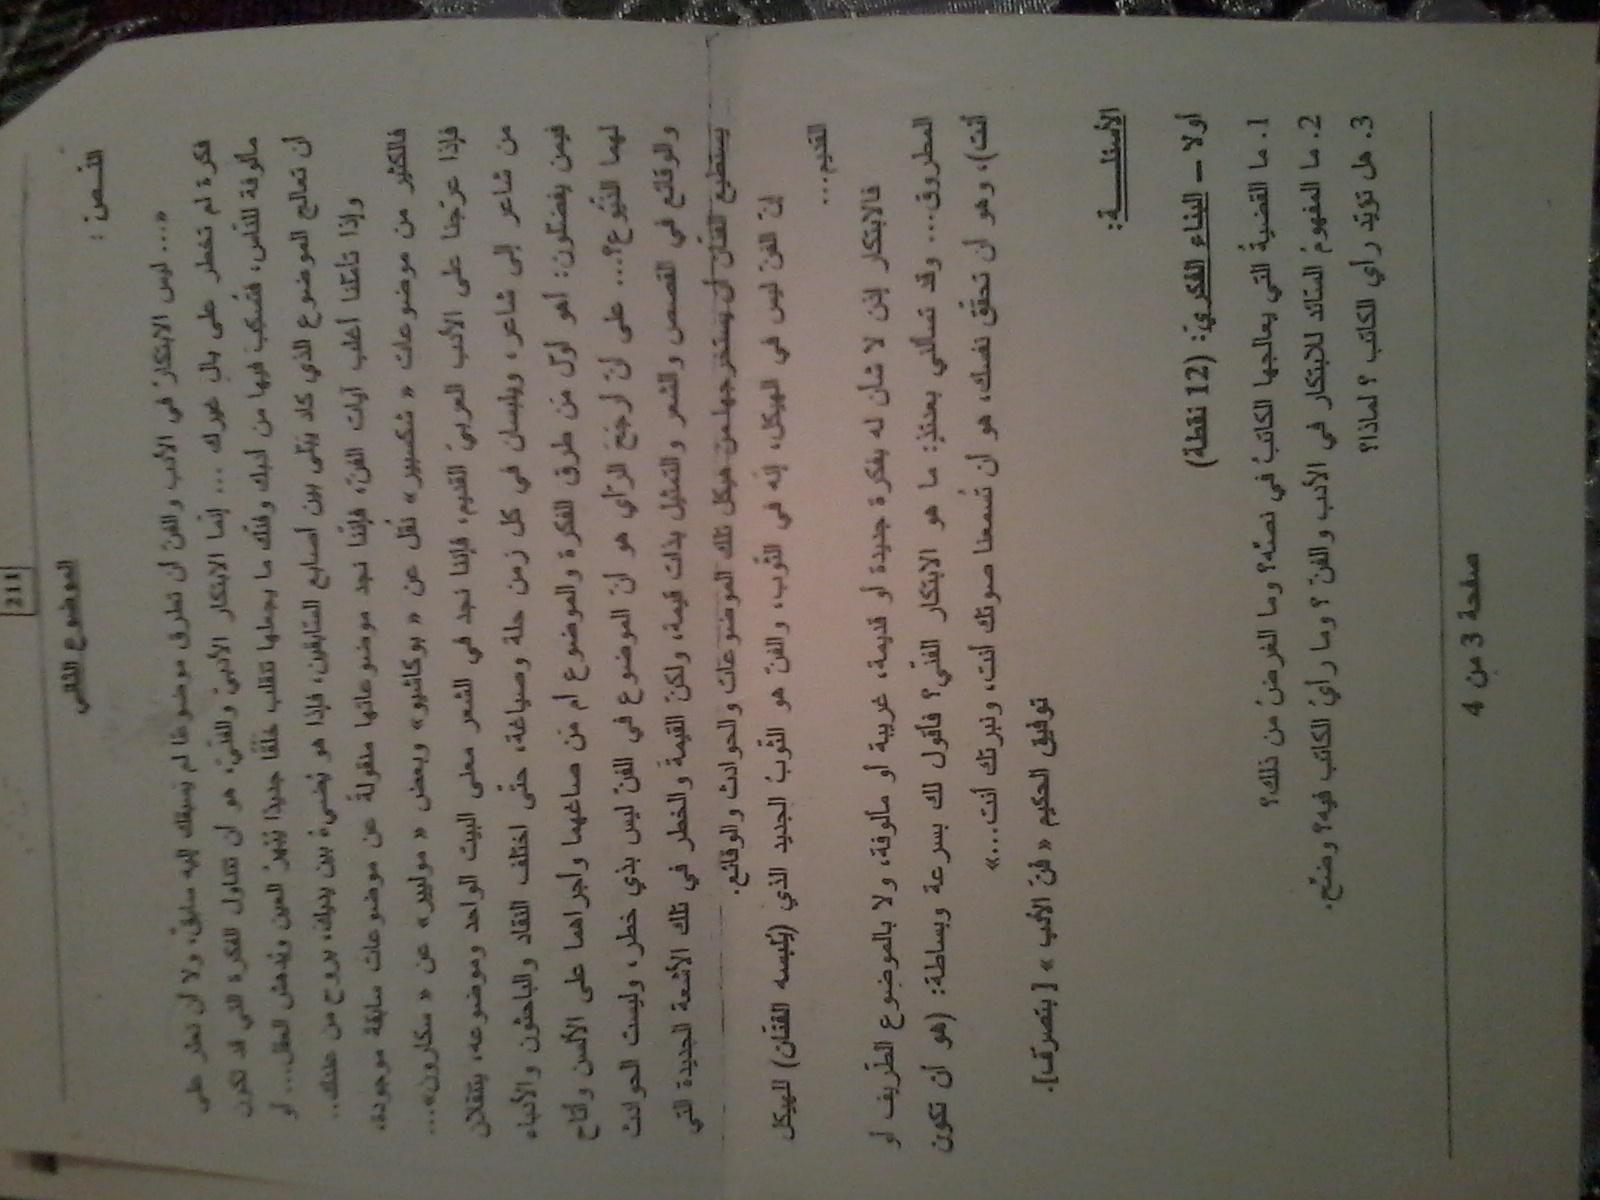 211
الموضوع الثاني
النـــص :
«... ليس الابتكارُ في الأدب والفنّ أن تطرق موضوعًا لم يسبقك إليه سابقٌ، ولا أن تعثر على
فكرة لم تخطر على بال غيرك ... إنّما الابتكار الأدبيّ والفنّيّ، هو أن تتناول الفكرة التي قد تكون
مألوفة للنّاس، فتسكب فيها من أدبك وفنّك ما يجعلها تنقلب خلقًا جديدًا يُبهِرُ العين ويُدهش العقل... أو
أن تعالج الموضوع الذي كاد يبلى بين أصابع السّابقين، فإذا هو يُضيءُ بين يديك، بروح من عندك..
وإذا تأمّلنا أغلب آيات الفنّ، فإنّنا نجد موضوعاتها منقولةً عن موضوعات سابقة موجودة،
فالكثير من موضوعات « شكسبير» نُقل عن « بوكاشيو» وبعض « موليير» عن « سكارون»...
فإذا عرّجنا على الأدب العربيّ القديم، فإنّنا نجد في الشعر معنى البيت الواحد وموضوعه، ينتقلان
من شاعر إلى شاعر، ويلبسان في كل زمن حلة وصياغة، حتّى اختلف النقاد والباحثون والأدباء
فيمن يفضلون: أهو أوّل من طرق الفكرة والموضوع أم من صاغهما وأجراهما على الألسن وأتاح
لهما الذّيوع؟... على أنّ أرجح الرّأي هو أنّ الموضوع في الفنّ ليس بذي خطر، وليست الحوادث
والوقائع في القصص والشعر والتمثيل بذات قيمة، ولكنّ القيمة والخطر في تلك الأشعة الجديدة التي
يستطيع الفنّان أن يستخرجها من هيكل تلك الموضوعات والحوادث والوقائع.
إنّ الفنّ ليس في الهيكل، إنّه في الثّوب، والفنّ هو الثّوبُ الجديد الذي (يُلبسه الفنّان) للهيكل
القديم...
فالابتكار إذن لا شأن له بفكرة جديدة أو قديمة، غريبة أو مألوفة، ولا بالموضوع الطّريف أو
المطروق... وقد تسألني بعدئذٍ: ما هو الابتكار الفنّي؟ فأقول لك بسرعة وبساطة: (هو أن تكون
أنت)، وهو أن تحقّق نفسك، هو أن تُسمعنا صوتك أنت، ونبرتك أنت...»
توفيق الحكيم « فنّ الأدب » [ بتصرف].
الأسئلـــــة:
أولا – البناء الفكريّ: (12 نقطة)
1. ما القضيةُ التي يعالجها الكاتبُ في نصّه؟ وما الغرضُ من ذلك؟
2. ما المفهومُ السّائد للابتكار في الأدب والفنّ ؟ وما رأيُ الكاتب فيه؟ وضّح.
3. هل تؤيّد رأي الكاتب ؟ لماذا؟
صفحة 3 من 4